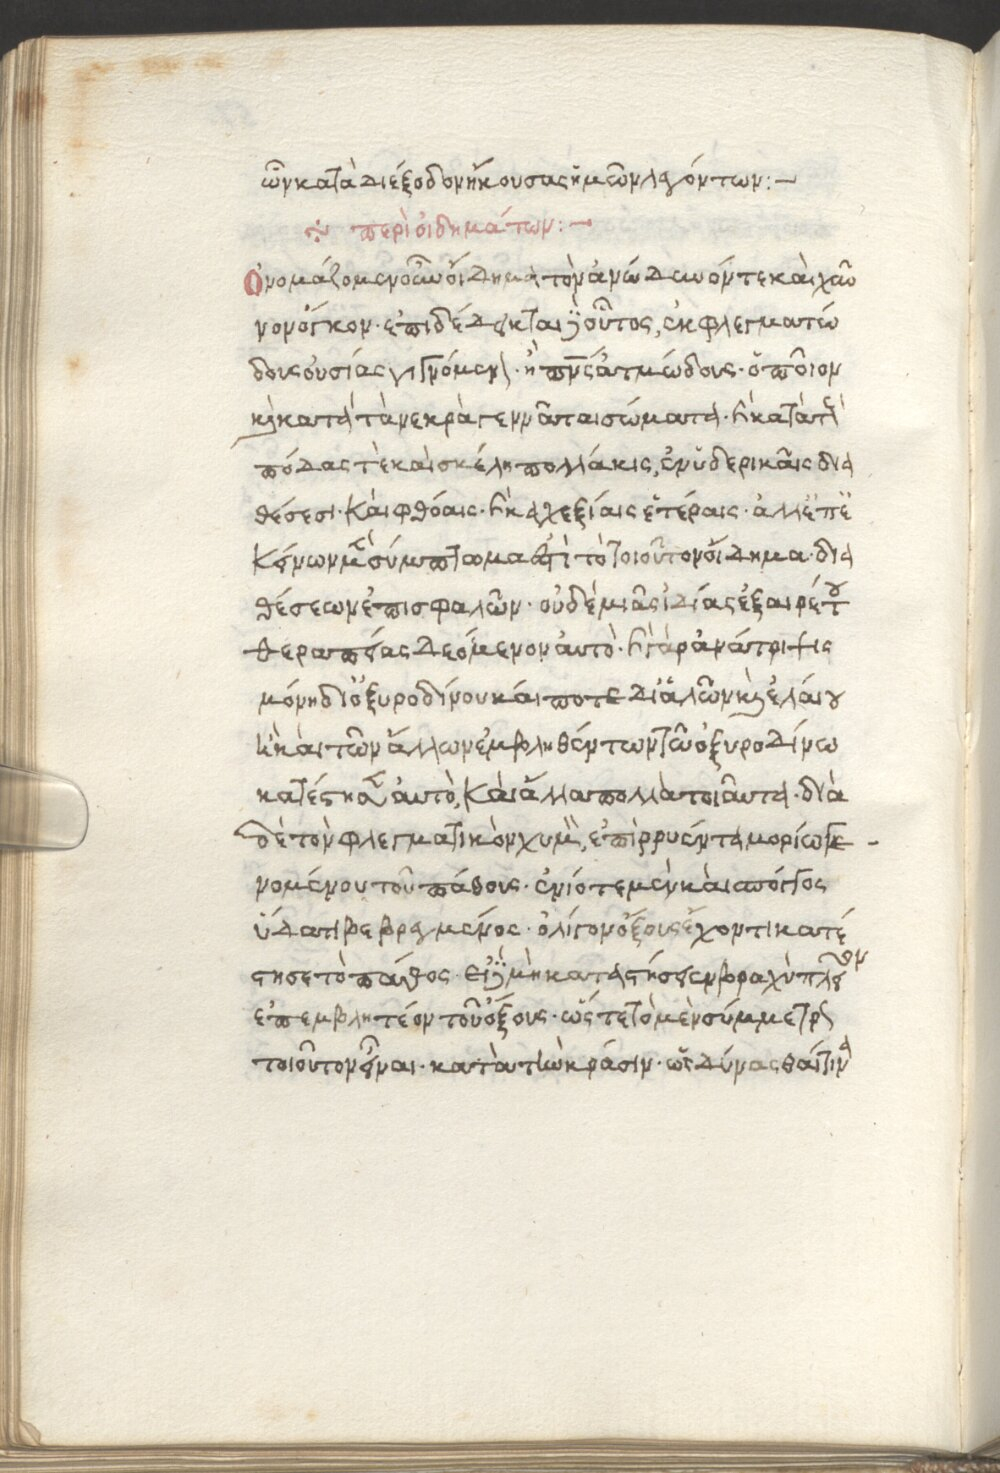 ὧν κατὰ διέξοδον ἤκουσας ἡμῶν λεγόντων:—
περὶ οἰδημάτων:—
Ὀνομάζομεν οὖν οἴδημα τὸν ἀνώδυνόν τε καὶ χαῦ
νον ὄγκον· ἐπιδέδεικται δὲ οὗτος, ἐκ φλεγματώ
δους οὐσίας γιγνόμενος· ἢ πνς ἀτμώδους· ὁποῖον
κἀκατὰ τὰ νεκρὰ γεννᾶται σώματα· καὶ κατὰ τοὺς
πόδας τὲ καὶ σκέλη πολλάκις, ἐν ὑδερικαῖς δια
θέσεσι· καὶ φθόαις· καὶ καχεξίαις ἑτέραις· ἀλλ' ἐπ'
κείνων μὲν σύμπτωμα ἐστὶ τὸ τοιοῦτον οἴδημα· δια
θέσεων ἐπισφαλῶν· οὐδὲ μιᾶς ἰδίας ἐξαιρέτου
θεραπείας δεόμενον αὐτὸ· καὶ γὰρ ἀνάτριψις
μόνη δι' ὀξυροδίνου καί ποτε δι' ἁλῶν καὶ ἐλαίου
καὶ καὶ τῶν ἄλλων ἐμβληθέντων τῶ ὀξυροδίνω
κατέστησεν αὐτὸ, καὶ ἄλλα πολλὰ τοιαῦτα· διὰ
δὲ τὸν φλεγματικὸν χυμὸν, ἐπιρρυέντα μορίω γε
νομένου τοῦ πάθους· ἐνίοτε μὲν καὶ σπόγγος
ὕδατι βεβρεγμένος· ὀλίγον ὄξους ἔχοντι κατέ
στησε τὸ πάθος· εἰ δὲ μὴ καταστήσειεν βραχὺ πλεῖον
ἐπεμβλητέον τοῦ ὄξους· ὥς τε τὸ μὲν σύμμετρον
τοιοῦτον εἶναι· κατὰ τὴν κράσιν· ὡς δύνασθαί τινα